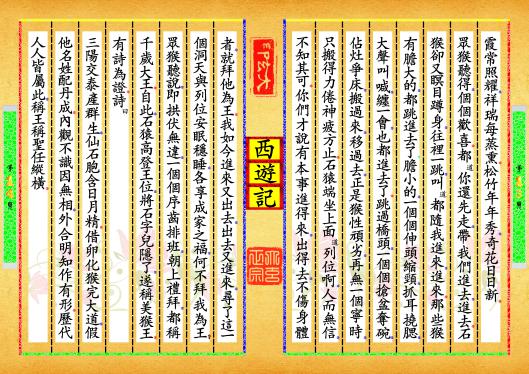 霞常照耀祥瑞每蒸熏松竹年年秀奇花日日新
眾猴聽得個個歡喜都道你還先走帶我們進去進去石
猴卻又瞑目蹲身往裡一跳叫道都隨我進來進來那些猴
有膽大的都跳進去了膽小的一個個伸頭縮頸抓耳撓腮
大聲叫喊纏一會也都進去了跳過橋頭一個個搶盆奪碗
佔灶爭床搬過來移過去正是猴性頑劣再無一個寧時
只搬得力倦神疲方止石猿端坐上面道列位啊人而無信
不知其可你們才說有本事進得來出得去不傷身體
西遊記
者就拜他為王我如今進來又出去出去又進來尋了這一
個洞天與列位安眠穩睡各享成家之福何不拜我為王
眾猴聽說即拱伏無違一個個序齒排班朝上禮拜都稱
千歲大王自此石猿高登王位將石字兒隱了遂稱美猴王
有詩為證詩曰
三陽交泰產群生仙石胞含日月精借卵化猴完大道假
他名姓配丹成內觀不識因無相外合明知作有形歷代
人人皆屬此稱王稱聖任縱橫